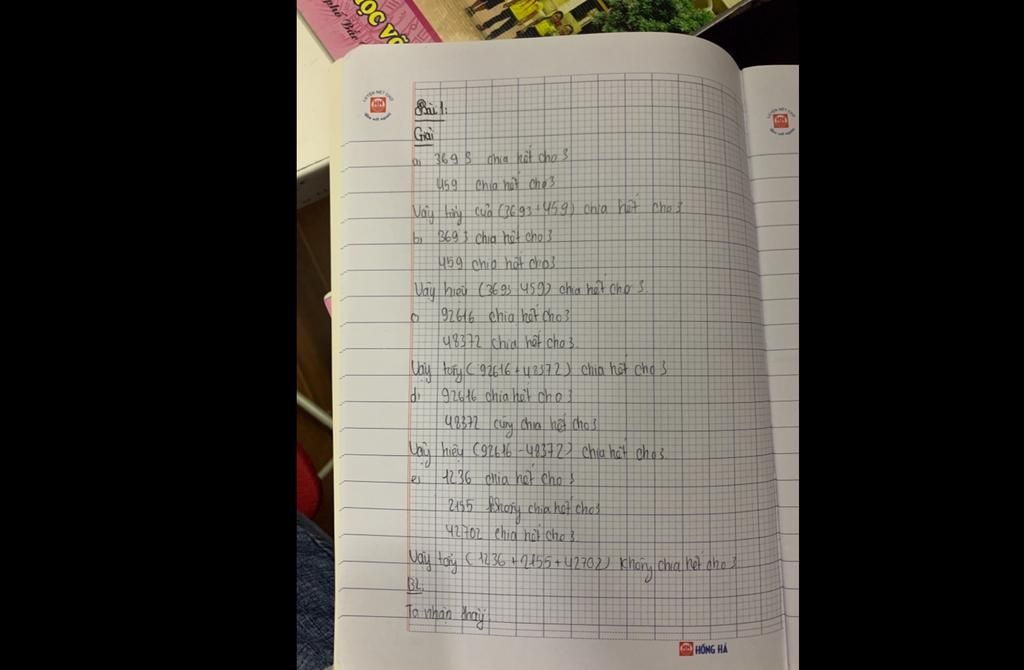 ỌC VÕ
phố Bắc
LUYỆN NÉT CHỮ
Bài 1:
Giải
a) 3693 chia hết cho 3
459 chia hết cho 3
Vậy tổng của (3693+459) chia hết cho 3
b) 3693 chia hết cho 3
459 chia hết cho 3
Vậy hiệu (3693-459) chia hết cho 3.
c) 92616 chia hết cho 3
48372 chia hết cho 3.
Vậy tổng (92616+48372) chia hết cho 3
d) 92616 chia hết cho 3
48372 cũng chia hết cho 3
Vậy hiệu (92616-48372) chia hết cho 3
e) 1236 chia hết cho 3
2155 không chia hết cho 3
42702 chia hết cho 3
Vậy tổng (1236+2155+42702) không chia hết cho 3
B2.
Ta nhận thấy
HỒNG HÀ